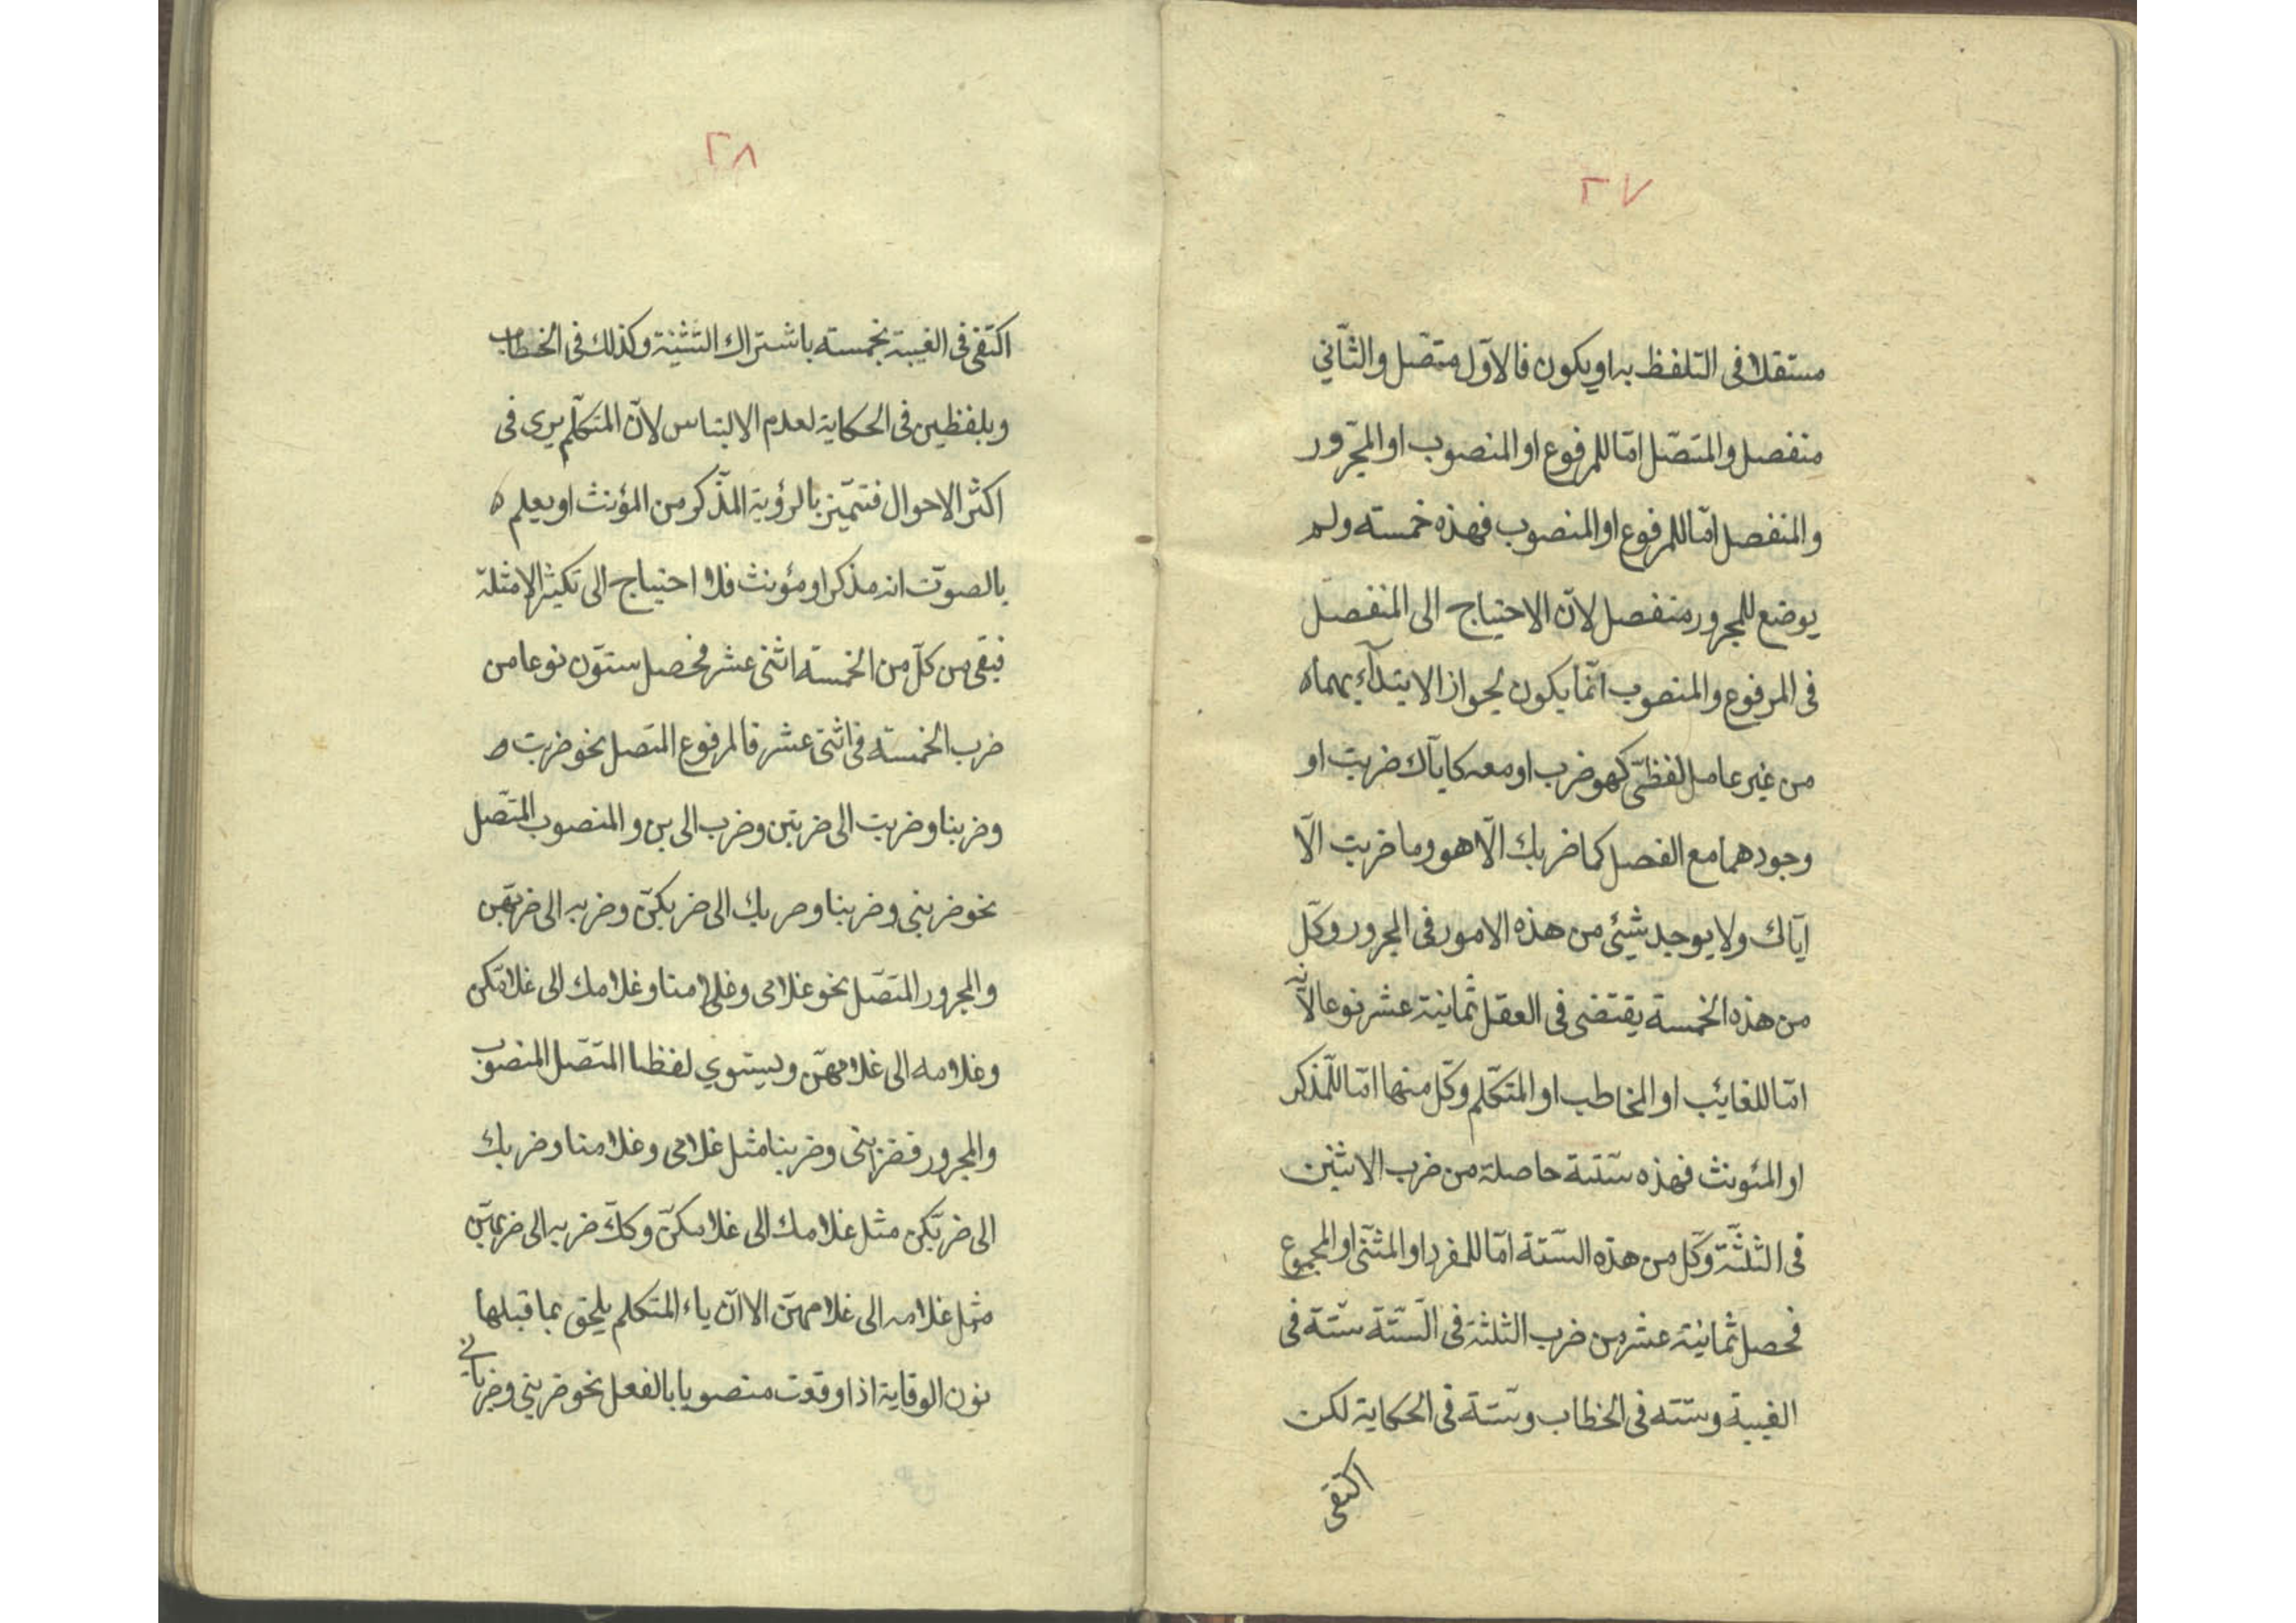 ٢٧
مستقلا فى التلفظ به او يكون فالاوّل متصّل والثّاني
منفصل والمتصّل امّا للمرفوع او المنصوب او المجرّور
والمنفصل امّا للمرفوع او المنصوب فهذه خمسته ولم
يوضع للمجرور منفصل لانّ الاحتياج الى المنفصل
فى المرفوع والمنصوب انّما يكون لجواز الابتدآء بهما ه
من غير عامل لفظىّ كهو ضرب او معه كايّاك ضربت او
وجودهما مع الفصل كما ضربك الّا هو وما ضربت الّا
ايّاك ولا يوجد شيئ من هذه الامور فى المجرور وكلّ
من هذه الخمسة يقتضى فى العقل ثمانية عشر نوعا لانّه
امّا للغايئب او المخاطب او المتكلّم وكلّ منها امّا للمّذكر
او المئونث فهذه ستّتة حاصلة من ضرب الاثنين
فى الثلثّة وكلّ من هذه الستّة امّا للمفرد او المثنّى او المجموع
فحصل ثمانية عشر من ضرب الثلثة فى السّتّة ستّة فى
الغيبة وستّه فى الخطاب وستّة فى الحكاية لكن
اكتفى
٢٨
اكتفى فى الغيبة بخمسته باشتراك التثنية وكذلك فى الخطاب
وبلفظين فى الحكاية لعدم الالتباس لانّ المتكلّم يرى فى
اكثر الاحوال فتتميّز بالرؤية المذّكر من المؤنث او يعلم ه
بالصوّت انه مذكر او مؤنث فلا احتياج الى تكثير الامثلة
فبقى من كلّ من الخمسة اثنى عشر فحصل ستوّن نوعا من
ضرب الخمسته فى اثنى عشر فالمرفوع المتصل نحو ضربت
وضربنا وضربت الى ضربتن وضرب الى بن والمنصوب المتصّل
نحو ضربنى وضربنا وضربك الى ضربكنّ وضربه الى ضربهّن
والمجرور المتصّل نحو غلامى وغلامنا وغلامك الى غلامكن
وغلامه الى غلامهنّ ويستوي لفظا المتصّل المنصوب
والمجرور فضربنى وضربنا مثل غلامى وغلامنا وضربك
الى ضربكّن مثل غلامك الى غلامكنّ وكذّ ضربه الى ضربهنّ
مثل غلامه الى غلامهنّ الا انّ ياء المتكلم يلحق بما قبلها
نون الوقاية اذا وقعت منصوبا بالفعل نحو ضربنى وضربانى